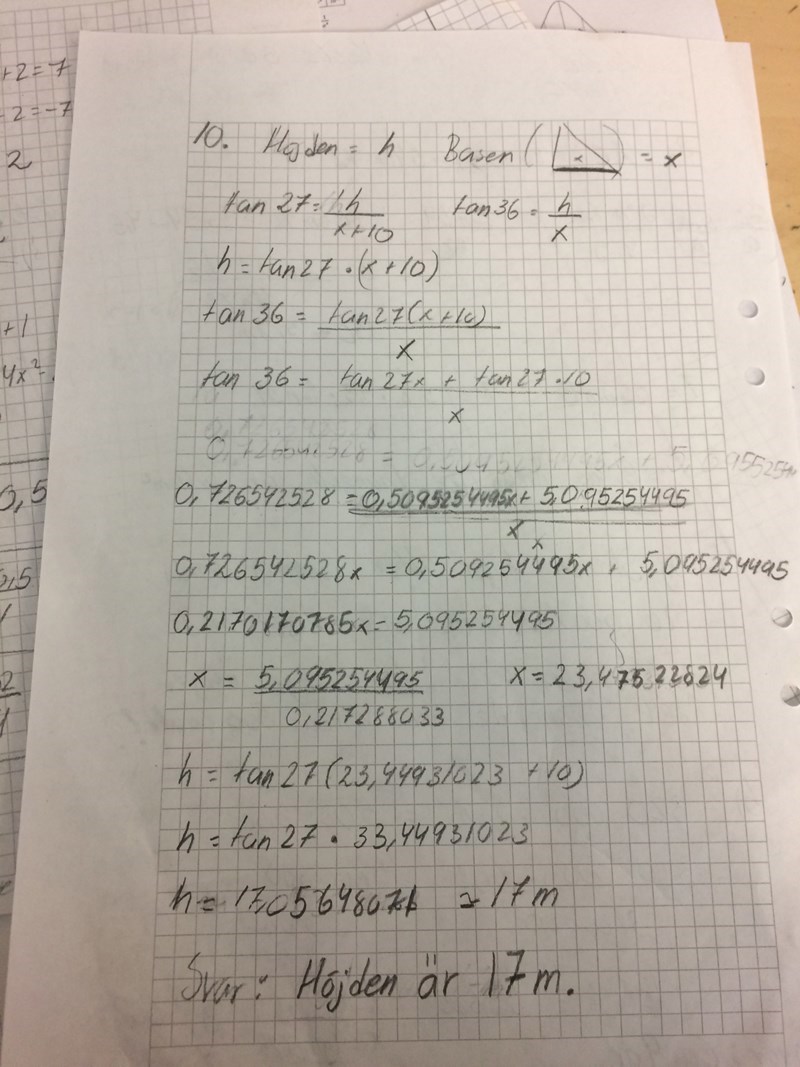 +2=7
2=-7
2
+1
4x²-
0,5
5,5
10. Höjden = h Basen ( ) = x
tan 27 = h / x+10 tan 36 = h / x
h = tan 27 · (x+10)
tan 36 = tan 27(x+10) / x
tan 36 = tan 27x + tan 27 · 10 / x
0,726542528 = 0,5095254495x + 5,095254495 / x
0,726542528x = 0,509254495x + 5,095254495
0,2170170785x = 5,095254495
x = 5,095254495 / 0,217288033 x = 23,47622824
h = tan 27 (23,44931023 + 10)
h = tan 27 · 33,44931023
h = 17,05648071 ≈ 17 m
Svar: Höjden är 17 m.